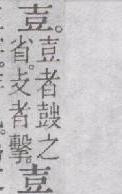 壴。
壴者鼓之
省。攴者擊。
壴